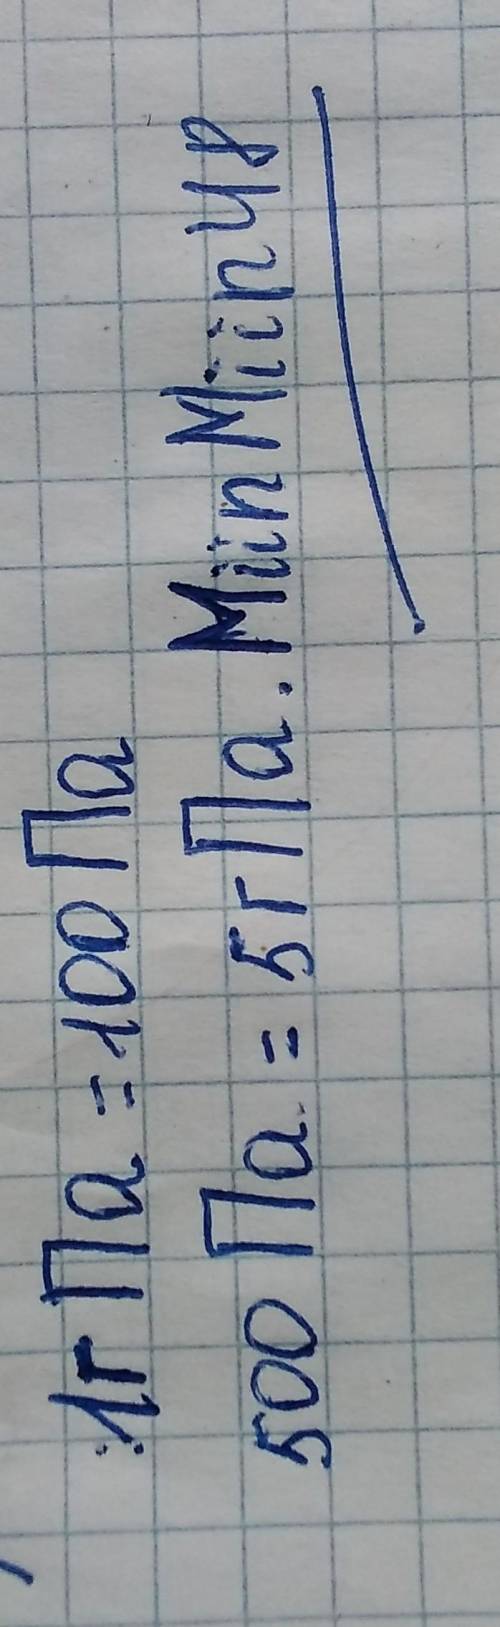 1гПа = 100 Па
500 Па = 5гПа. MiinMiin48